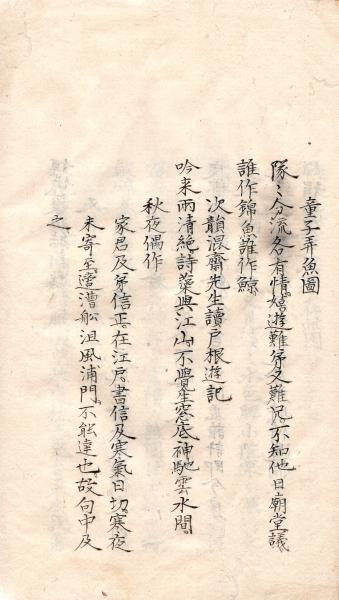 童子弄魚圖
隊〻分流各有情嬉遊難弟又難兄不知他日廟堂議
誰作錦魚誰作鯨
次韻混齋先生讀戸根遊記
吟来両清絶詩藻與江山不覺坐窓底神馳雲水間
秋夜偶作
家君及弟信正在江戸書信及寒氣日切寒夜
未寄至遭漕船沮風浦門不能達也故句中及
之